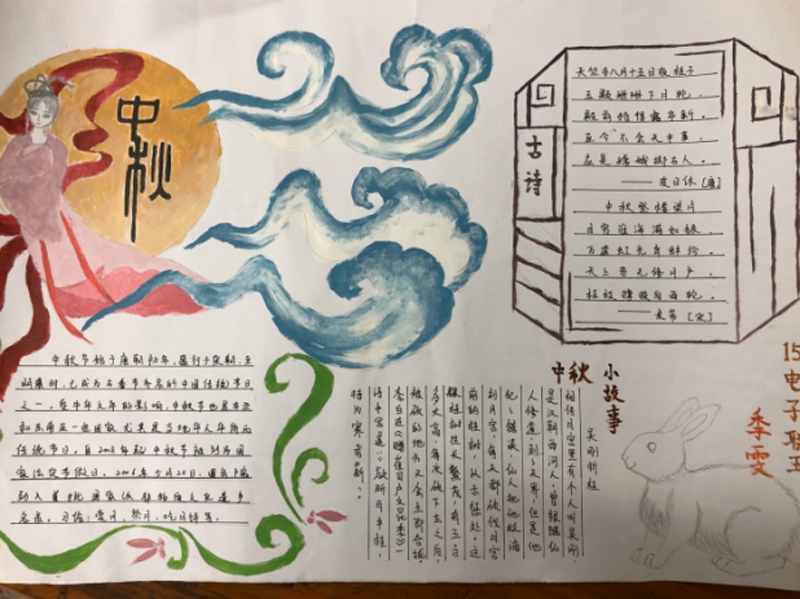 中秋
古诗
天竺寺八月十五日夜桂子
玉颗珊珊下月轮，
殿前拾得露华新。
至今不会天中事，
应是嫦娥掷与人。
——皮日休［唐］
中秋登楼望月
月宫
天上
桂枝
［宋］
中秋节始于唐朝初年，盛行于宋朝，至
明清时，已成为与春节齐名的中国传统节日
之一。受中华文化的影响，中秋节也是东亚
和东南亚一些国家尤其是当地华人华侨的
传统节日。自2008年起中秋节被列为国
家法定节假日。2006年5月20日，国务院
列入首批国家级非物质文化遗产
名录。习俗：赏月、祭月、吃月饼等。
中秋小故事
吴刚折桂
相传月宫里有个人叫吴刚，
是汉朝西河人，曾跟随仙
人修道，到了天界，但是他
犯了错误，仙人把他贬谪
到月宫，每天都砍伐月宫
前的桂树，以示惩处。这
棵桂树生长繁茂，有五百
多丈高，每次砍下去之后，
被砍的地方又会立即合拢，
李白在
诗中写道：“欲斫月中桂，
持为寒者薪”。
15
电子
李雯